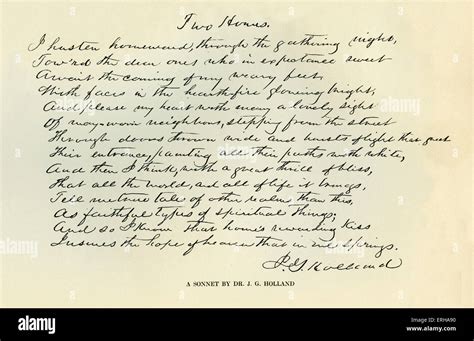 Two Homes.
I hasten homeward, through the gathering night,
Tow'rd the dear ones who in expectance sweet
Await the coming of my weary feet,
With faces in the hearthfire glowing bright,
And please my heart with many a lovely sight
Of way-worn neighbors, stepping from the street
Through doors thrown wide and bursts of light that greet
Their entrance, painting all their paths with white,
And then I think, with a great thrill of bliss,
That all the world, and all of life it brings,
Tell me true tale of other realms than this,
As faithful types of spiritual things;
And so I know that home's rewarding kiss
Insures the hope of heaven that in me springs.
J. G. Holland
A SONNET BY DR. J. G. HOLLAND
alamy
Image ID: ERHA90
www.alamy.com